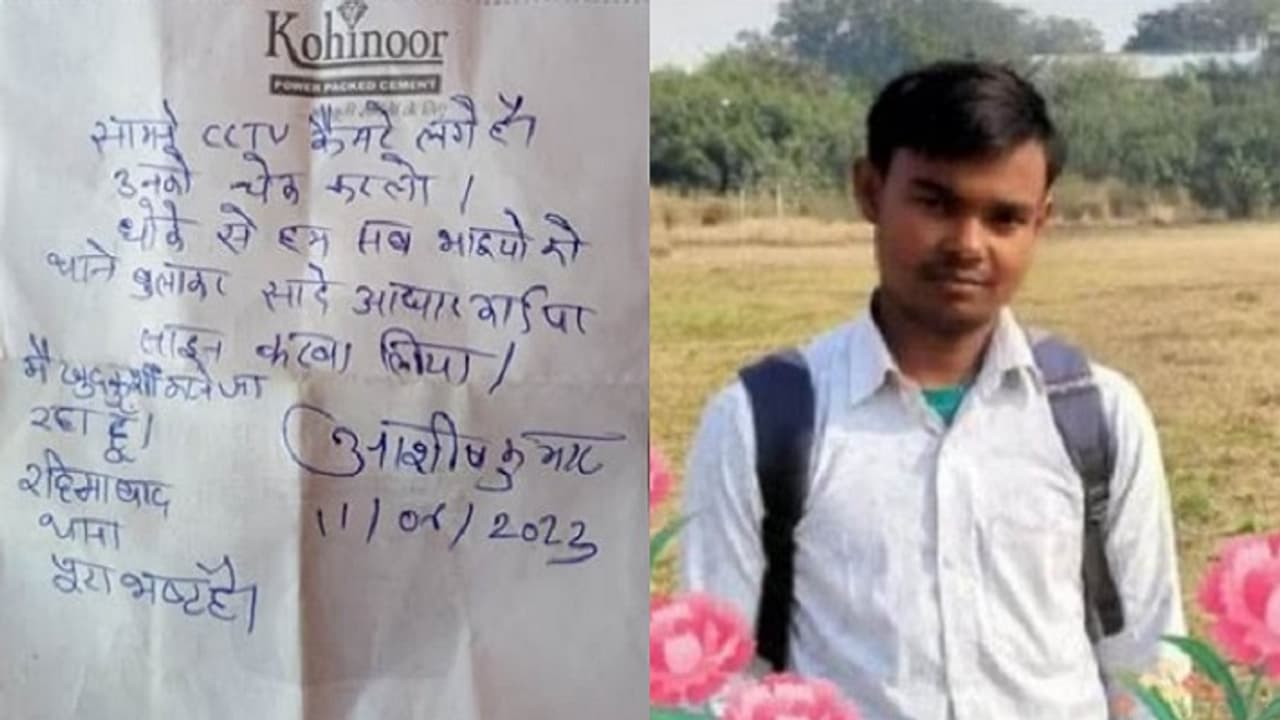 Kohinoor
POWER PACKED CEMENT
सामने CCTV कैमरे लगे है।
उनको चेक करलो।
धोके से हम सब भाइयो को
थाने बुलाकर सादे आधार कार्ड पर
साइन करवा लिया।
मै खुदकुशी करने जा
रहा हूँ।
आशीष कुमार
11/04/2023
रहिमाबाद
थाना
पूरा भ्रष्ट है।